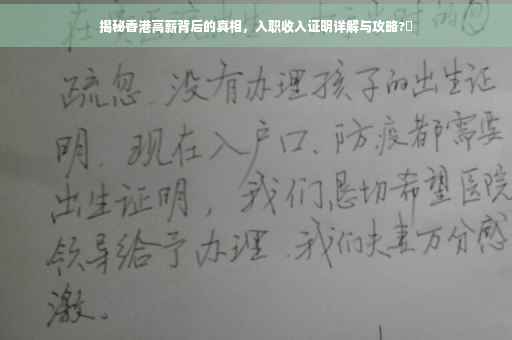 在贵医院出生，由于我们的
揭秘香港高薪背后的真相，入职收入证明详解与攻略?
疏忽、没有办理孩子的出生证
明、现在入户口、防疫都需要
出生证明，我们恳切希望医院
领导给予办理、我们夫妻万分感
激。